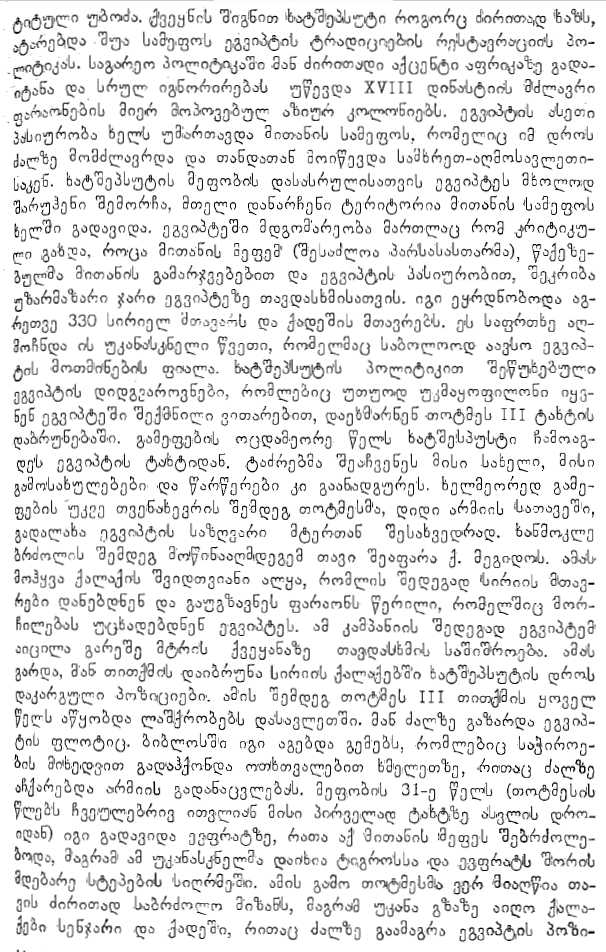 ტიტული უბოძა. ქვეყნის შიგნით ხატშეპსუტი როგორც ძირითად ხაზს,
ატარებდა შუა სამეფოს ეგვიპტის ტრადიციების რესტავრაციის პო-
ლიტიკას. საგარეო პოლიტიკაში მან ძირითადი აქცენტი აფრიკაზე გადა-
იტანა და სრულ იგნორირებას უწევდა XVIII დინასტიის მძლავრი
ფარაონების მიერ მოპოვებულ აზიურ კოლონიებს. ეგვიპტის ასეთი
პასიურობა ხელს უმართავდა მითანის სამეფოს, რომელიც იმ დროს
ძალზე მომძლავრდა და თანდათან მოიწევდა სამხრეთ-აღმოსავლეთი-
საკენ. ხატშეპსუტის მეფობის დასასრულისათვის ეგვიპტეს მხოლოდ
შარუჰენი შემორჩა, მთელი დანარჩენი ტერიტორია მითანის სამეფოს
ხელში გადავიდა. ეგვიპტეში მდგომარეობა მართლაც რომ კრიტიკუ-
ლი გახდა, როცა მითანის მეფემ (შესაძლოა პარსასასთარმა), წაქეზე-
ბულმა მითანის გამარჯვებებით და ეგვიპტის პასიურობით, შეკრიბა
უზარმაზარი ჯარი ეგვიპტეზე თავდასხმისათვის. იგი ეყრდნობოდა აგ-
რეთვე 330 სირიელ მთავარს და ქადეშის მთავრებს. ეს საფრთხე აღ-
მოჩნდა ის უკანასკნელი წვეთი, რომელმაც საბოლოოდ აავსო ეგვიპ-
ტის მოთმინების ფიალა. ხატშეპსუტის პოლიტიკით შეწუხებული
ეგვიპტის დიდგვაროვნები, რომლებიც უთუოდ უკმაყოფილონი იყვ-
ნენ ეგვიპტეში შექმნილი ვითარებით, დაეხმარნენ თოტმეს III ტახტის
დაბრუნებაში. გამეფების ოცდამეორე წელს ხატშესპუსტი ჩამოაგ-
დეს ეგვიპტის ტახტიდან. ტაძრებმა შეაჩვენეს მისი სახელი, მისი
გამოსახულებები და წარწერები კი გაანადგურეს. ხელმეორედ გამე-
ფების უკვე თვენახევრის შემდეგ თოტმესმა, დიდი არმიის სათავეში,
გადალახა ეგვიპტის საზღვარი მტერთან შესახვედრად. ხანმოკლე
ბრძოლის შემდეგ მოწინააღმდეგემ თავი შეაფარა ქ. მეგიდოს. ამას
მოჰყვა ქალაქის შვიდთვიანი ალყა, რომლის შედეგად სირიის მთავ-
რები დანებდნენ და გაუგზავნეს ფარაონს წერილი, რომელშიც მორ-
ჩილებას უცხადებდნენ ეგვიპტეს. ამ კამპანიის შედეგად ეგვიპტემ
აიცილა გარეშე მტრის ქვეყანაზე თავდასხმის საშიშროება. ამას
გარდა, მან თითქმის დაიბრუნა სირიის ქალაქებში ხატშეპსუტის დროს
დაკარგული პოზიციები. ამის შემდეგ თოტმეს III თითქმის ყოველ
წელს აწყობდა ლაშქრობებს დასავლეთში. მან ძალზე გაზარდა ეგვიპ-
ტის ფლოტიც. ბიბლოსში იგი აგებდა გემებს, რომლებიც საჭიროე-
ბის მიხედვით გადაჰქონდა ოთხთვალებით ხმელეთზე, რითაც ძალზე
აჩქარებდა არმიის გადანაცვლებას. მეფობის 31-ე წელს (თოტმესის
წლებს ჩვეულებრივ ითვლიან მისი პირველად ტახტზე ასვლის დრო-
იდან) იგი გადავიდა ევფრატზე, რათა აქ მითანის მეფეს შებრძოლე-
ბოდა, მაგრამ ამ უკანასკნელმა დაიხია ტიგროსსა და ევფრატს შორის
მდებარე სტეპების სიღრმეში. ამის გამო თოტმესმა ვერ მიაღწია თა-
ვის ძირითად საბრძოლო მიზანს, მაგრამ უკანა გზაზე აიღო ქალა-
ქები სენჯარი და ქადეში, რითაც ძალზე გაამაგრა ეგვიპტის პოზი-